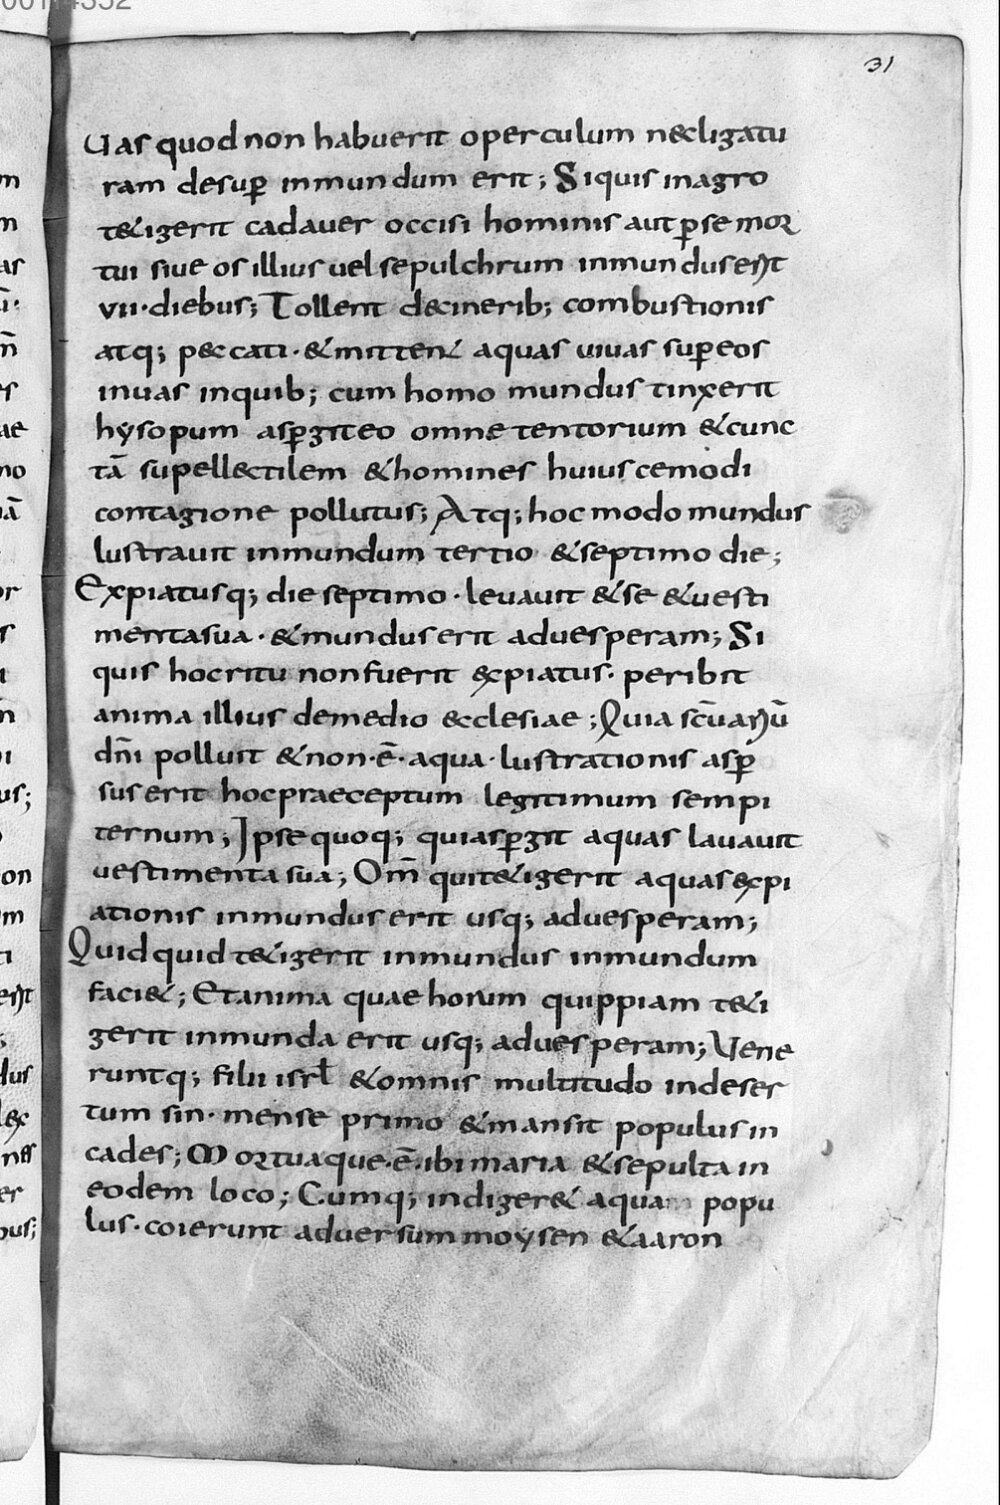 31
Uas quod non habuerit operculum necligatu
ram desup̱ inmundum erit; Siquis inagro
t&igerit cadauer occisi hominis aut p̱se mor
tui siue os illius uel sepulchrum inmundus erit
vii·diebus; Tollent decinerib; combustionis
atq; peccati· &mitten& aquas uiuas sup̱ eos
inuas inquib; cum homo mundus tinxerit
hẏsopum asp̱giteo omne tentorium &cunc
tā supell&tilem &homines huiuscemodi
contagione pollutus; Atq; hoc modo mundus
lustrauit inmundum tertio &septimo die;
Expiatusq; die septimo· leuauit &se &uesti
mentasua· &mundus erit aduesperam; Si
quis hocritu nonfuerit expiatus· peribit
anima illius demedio ecclesiae; Quia sc̄uariū
dn̄i polluit &non·ē· aqua· lustrationis asp̱
sus erit hocpraeceptum legitimum sempi
ternum; Ipse quoq; quiasp̱git aquas lauauit
uestimenta sua; Om̄ quit&igerit aquas expi
ationis inmundus erit usq; aduesperam;
Quidquid t&igerit inmundus inmundum
faci&; Et anima quae horum quippiam t&i
gerit inmunda erit usq; aduesperam; Uene
runtq; filii isrł &omnis multitudo indeser
tum sin· mense primo &mansit populus in
cades; Mortuaque·ē· ibi maria &sepulta in
eodem loco; Cumq; indiger& aquam popu
lus· coierunt aduersum moẏsen &aaron